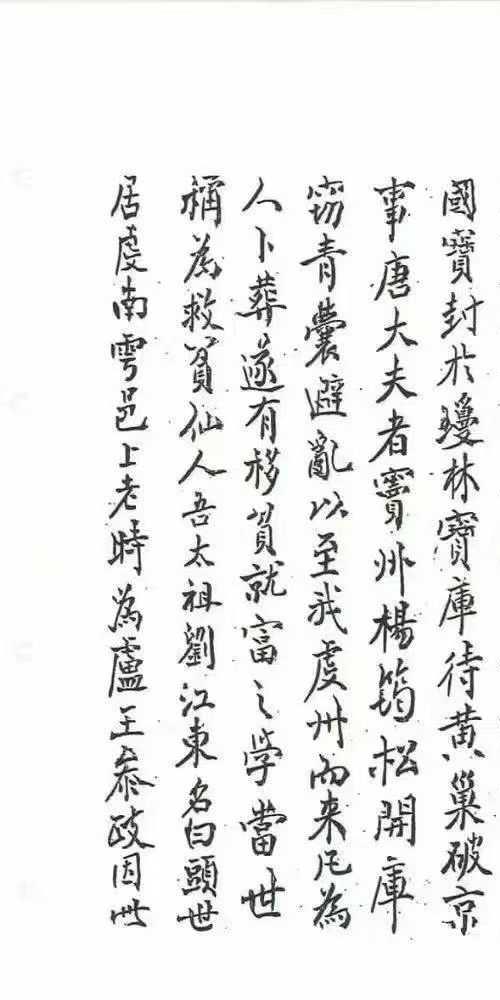 國寶封於瓊林寶庫待黄巢破京
事唐大夫者竇州楊筠松開庫
窃青囊避亂以至我虔州而来凡為
人卜葬遂有移貧就富之學當世
稱為救貧仙人吾太祖劉江東名白頭世
居虔南雩邑上老時為盧王泰政因世